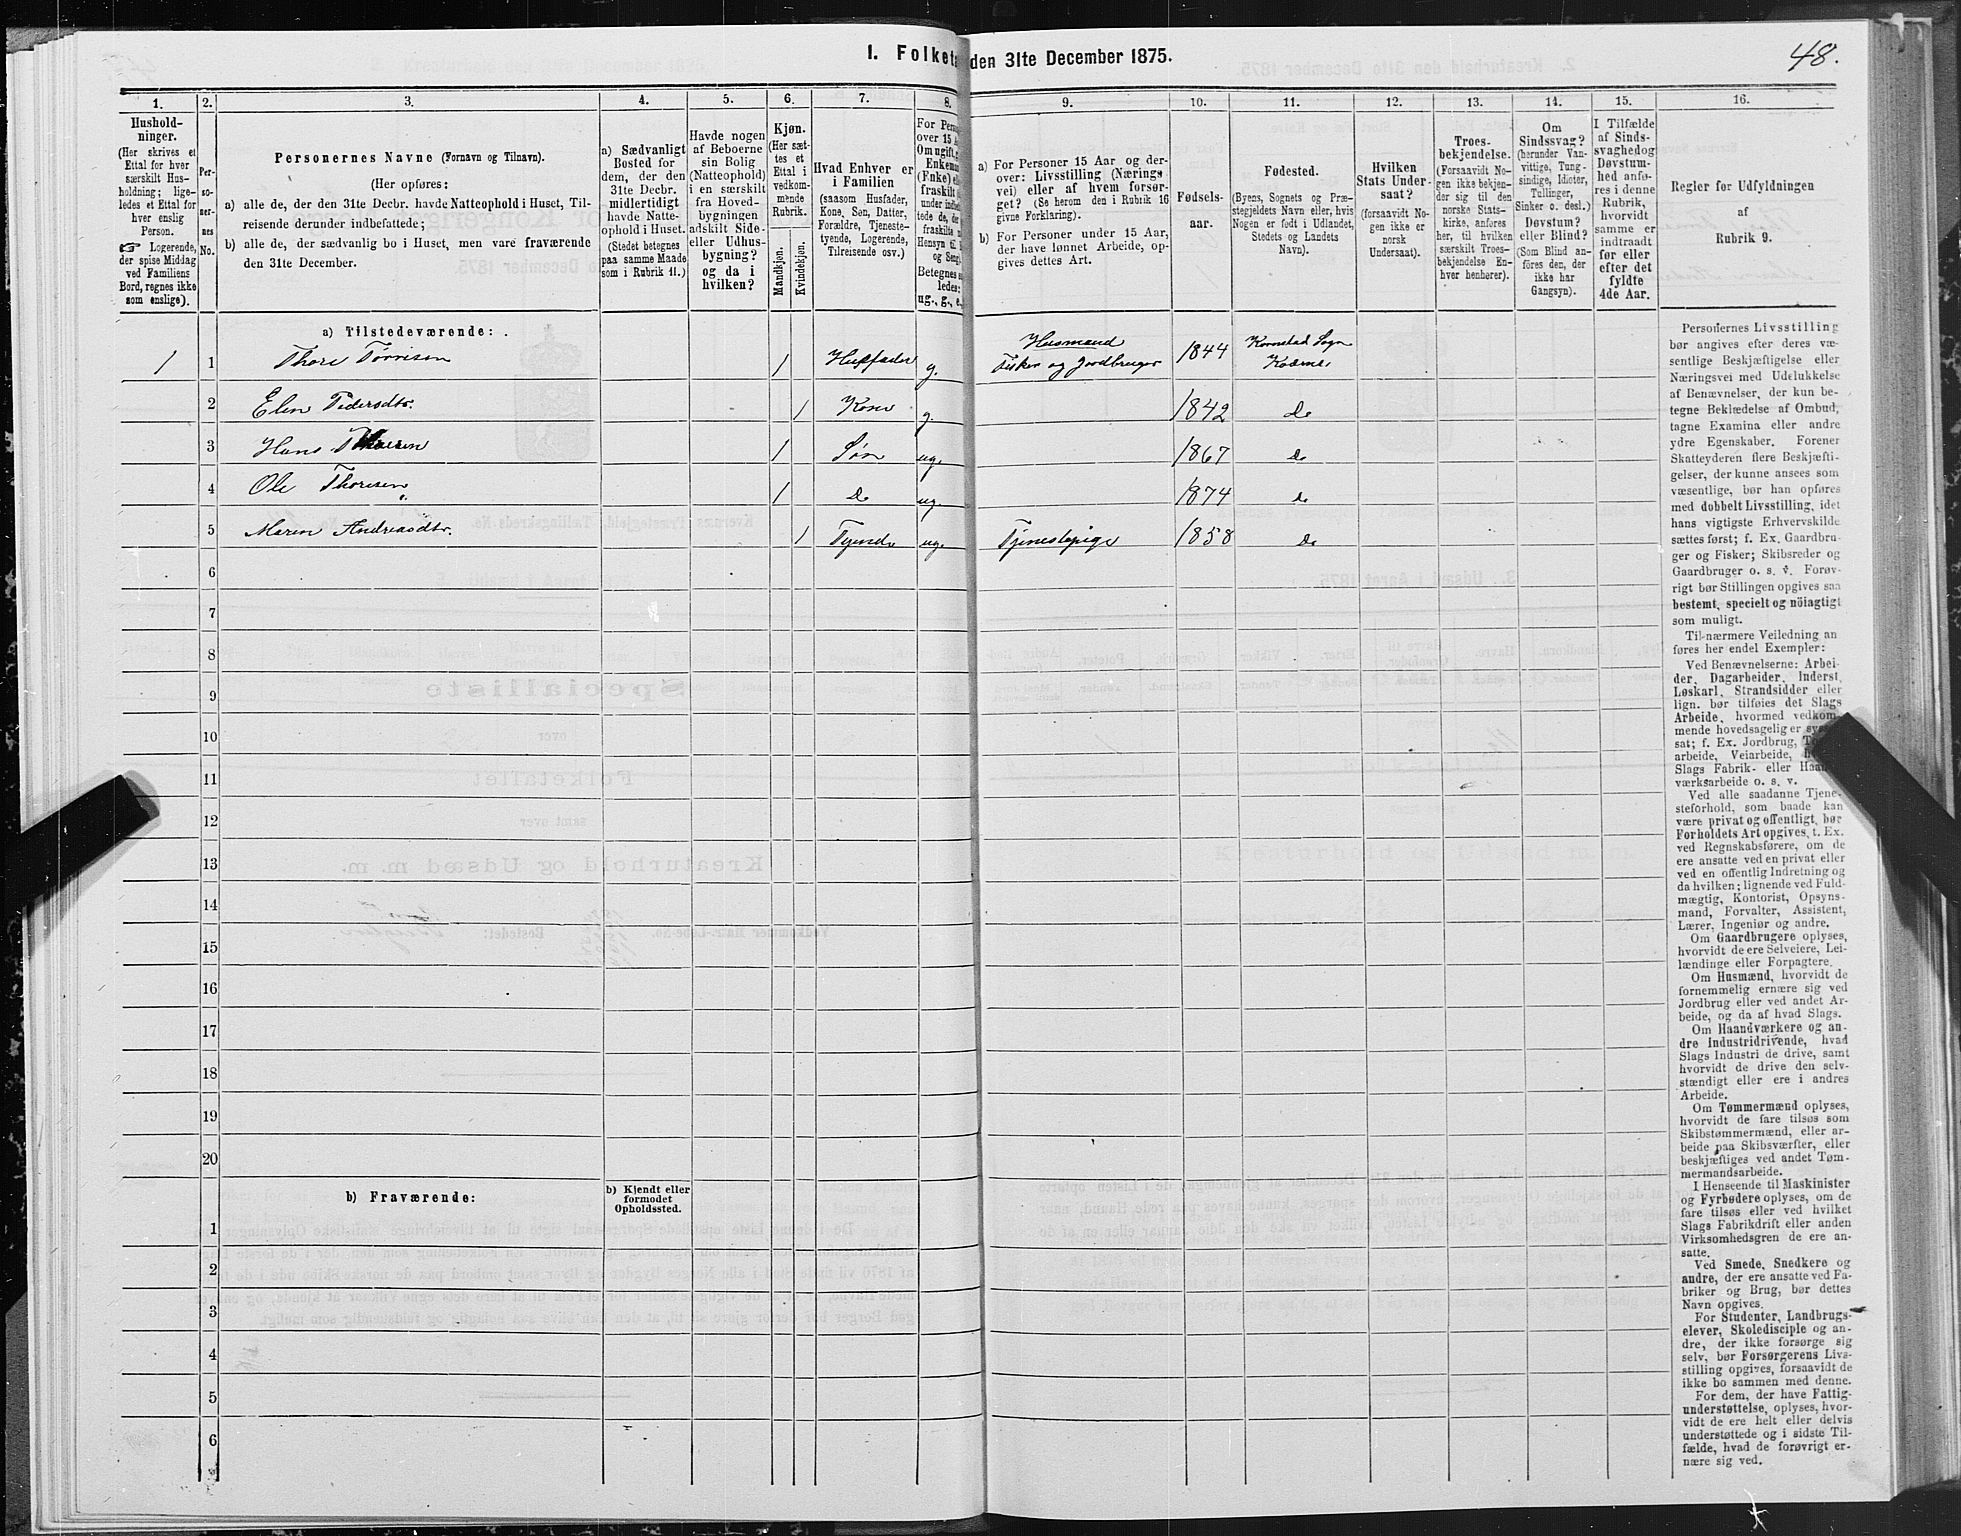 I. Folketæ den 31te December 1875.
48.
1. 2. 3. 4. 5. 6. 7. 8. 9. 10. 11. 12. 13. 14. 15. 16.
Hushold-
ninger.
(Her skrives et
Ettal for hver
særskilt Hus-
holdning; lige-
ledes et Ettal for
hver enslig
Person.
☞ Logerende,
der spise Middag
ved Familiens
Bord, regnes ikke
som enslige).
Per-
so-
ner-
nes
No.
Personernes Navne (Fornavn og Tilnavn).
(Her opføres:
a) alle de, der den 31te Decbr. havde Natteophold i Huset, Til-
reisende derunder indbefattede;
b) alle de, der sædvanlig bo i Huset, men vare fraværende
den 31te December.
a) Sædvanligt
Bosted for
dem, der den
31te Decbr.
midlertidigt
havde Natte-
ophold i Huset.
(Stedet betegnes
paa samme Maade
som i Rubrik 11.)
Havde nogen
af Beboerne
sin Bolig
(Natteophold)
i en særskilt
fra Hoved-
bygningen
adskilt Side-
eller Udhus-
bygning?
og da i
hvilken?
Kjøn.
(Her sæt-
tes et
Ettal i
vedkom-
mende
Rubrik.
Mandkjøn.
Kvindekjøn.
Hvad Enhver er
i Familien
(saasom Husfader,
Kone, Søn, Datter,
Forældre, Tjeneste-
tyende, Logerende,
Tilreisende osv.)
For Perso
over 15 A
Om ugift, g
Enkemæ
(Enke) e
fraskilt
Betegnes s
ledes:
ug., g., e.
a) For Personer 15 Aar og der-
over: Livsstilling (Nærings
vei) eller af hvem forsør-
get? (Se herom den i Rubrik 16
givne Forklaring).
b) For Personer under 15 Aar,
der have lønnet Arbeide, op-
gives dettes Art.
Fødsels-
aar.
Fødested.
(Byens, Sognets og Præ-
stegjeldets Navn eller, hvis
Nogen er født i Udlandet,
Stedets og Landets
Navn).
Hvilken
Stats Under-
saat?
(forsaavidt No-
gen ikke er
norsk
Undersaat).
Troes-
bekjendelse.
(Forsaavidt No-
gen ikke bekjen-
der sig til den
norske Stats-
kirke, anføres
her, til hvilken
særskilt Troes-
bekjendelse En-
hver henhører).
Om
Sindssvag?
(herunder Van-
vittige, Tung-
sindige, Idioter,
Tullinger,
Sinker o. desl.)
Døvstum?
eller Blind?
(Som Blind an-
føres den, der
ikke har
Gangsyn).
I Tilfælde
af Sinds-
svaghed og
Døvstum-
hed anfø-
res i denne
Rubrik,
hvorvidt
samme er
indtraadt
før eller
efter det
fyldte
4de Aar.
Regler for Udfyldningen
af
Rubrik 9.
a) Tilstedeværende:
1 1 Thore Tørrisen 1 Husfader g. Husmand Fisker og Jordbruger 1844 Kornstad Sogn Kværnes
2 Elen Pedersdtr. 1 Kone g. 1842 do
3 Hans Thoresen 1 Søn ug. 1867 do
4 Ole Thoresen 1 do ug. 1874 do
5 Maren Andreasdtr. 1 Tyende ug. Tjenestepige 1858 do
6
7
8
9
10
11
12
13
14
15
16
17
18
19
20
b) Fraværende:
b) Kjendt eller
formodet
Opholdssted.
1
2
3
4
5
6
Personernes Livsstilling
bør angives efter deres væ-
sentlige Beskjæftigelse eller
Næringsvei med Udelukkelse
af Benævnelser, der kun be-
tegne Beklædelse af Ombud,
tagne Examina eller andre
ydre Egenskaber. Forener
Skatteyderen flere Beskjæfti-
gelser, der kunne ansees som
væsentlige, bør han opføres
med dobbelt Livsstilling, idet
hans vigtigste Erhvervskilde
sættes først; f. Ex. Gaardbru-
ger og Fisker; Skibsreder og
Gaardbruger o. s. v. Forøv-
rigt bør Stillingen opgives saa
bestemt, specielt og nöiagtigt
som muligt.
Til nærmere Veiledning an
føres her endel Exempler:
Ved Benævnelserne: Arbei-
der, Dagarbeider, Inderst,
Løskarl, Strandsidder eller
lign. bør tilføies det Slags
Arbeide, hvormed vedkom-
mende hovedsagelig er syssel
sat; f. Ex. Jordbrug,
arbeide, Veiarbeide,
Slags Fabrik- eller Haand
værksarbeide o. s. v.
Ved alle saadanne Tjene-
steforhold, som baade kan
være privat og offentligt, bør
Forholdets Art opgives, t. Ex.
ved Regnskabsførere, om de
ere ansatte ved en privat eller
ved en offentlig Indretning og
da hvilken; lignende ved Fuld-
mægtig, Kontorist, Opsyns-
mand, Forvalter, Assistent,
Lærer, Ingeniør og andre.
Om Gaardbrugere oplyses,
hvorvidt de ere Selveiere, Lei-
lændinge eller Forpagtere.
Om Husmænd, hvorvidt de
fornemmelig ernære sig ved
Jordbrug eller ved andet Ar-
beide, og da af hvad Slags.
Om Haandværkere og an-
dre Industridrivende, hvad
Slags Industri de drive, samt
hvorvidt de drive den selv-
stændigt eller ere i andres
Arbeide.
Om Tømmermænd oplyses,
hvorvidt de fare tilsøs som
Skibstømmermænd, eller ar-
beide paa Skibsværfter, eller
beskjæftiges ved andet Tøm-
mermandsarbeide.
I Henseende til Maskinister
og Fyrbødere oplyses, om de
fare tilsøs eller ved hvilket
Slags Fabrikdrift eller anden
Virksomhedsgren de ere an-
satte.
Ved Smede, Snedkere og
andre, der ere ansatte ved Fa-
briker og Brug, bør dettes
Navn opgives.
For Studenter, Landbrugs-
elever, Skoledisciple og an-
dre, der ikke forsørge sig
selv, bør Forsørgerens Livs-
stilling opgives, forsaavidt de
ikke bo sammen med denne.
For dem, der have Fattig-
understøttelse, oplyses, hvor-
vidt de ere helt eller delvis
understøttede og i sidste Til-
fælde, hvad de forøvrigt er-
nære sig ved.